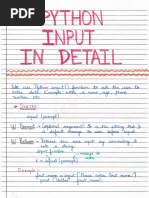 PYTHON
INPUT
IN DETAIL
We use Python input() function to ask the user to
enter data. Example enter a name, age, phone
number etc.
Syntax
input (prompt)
Prompt - (optional argument) Is the string that is
a default message to save before input.
Return - Returns the value by converting
into a string
input function
x = input (prompt)
Example :
first name = input ("Please enter first name:")
print ("Hello", first name)